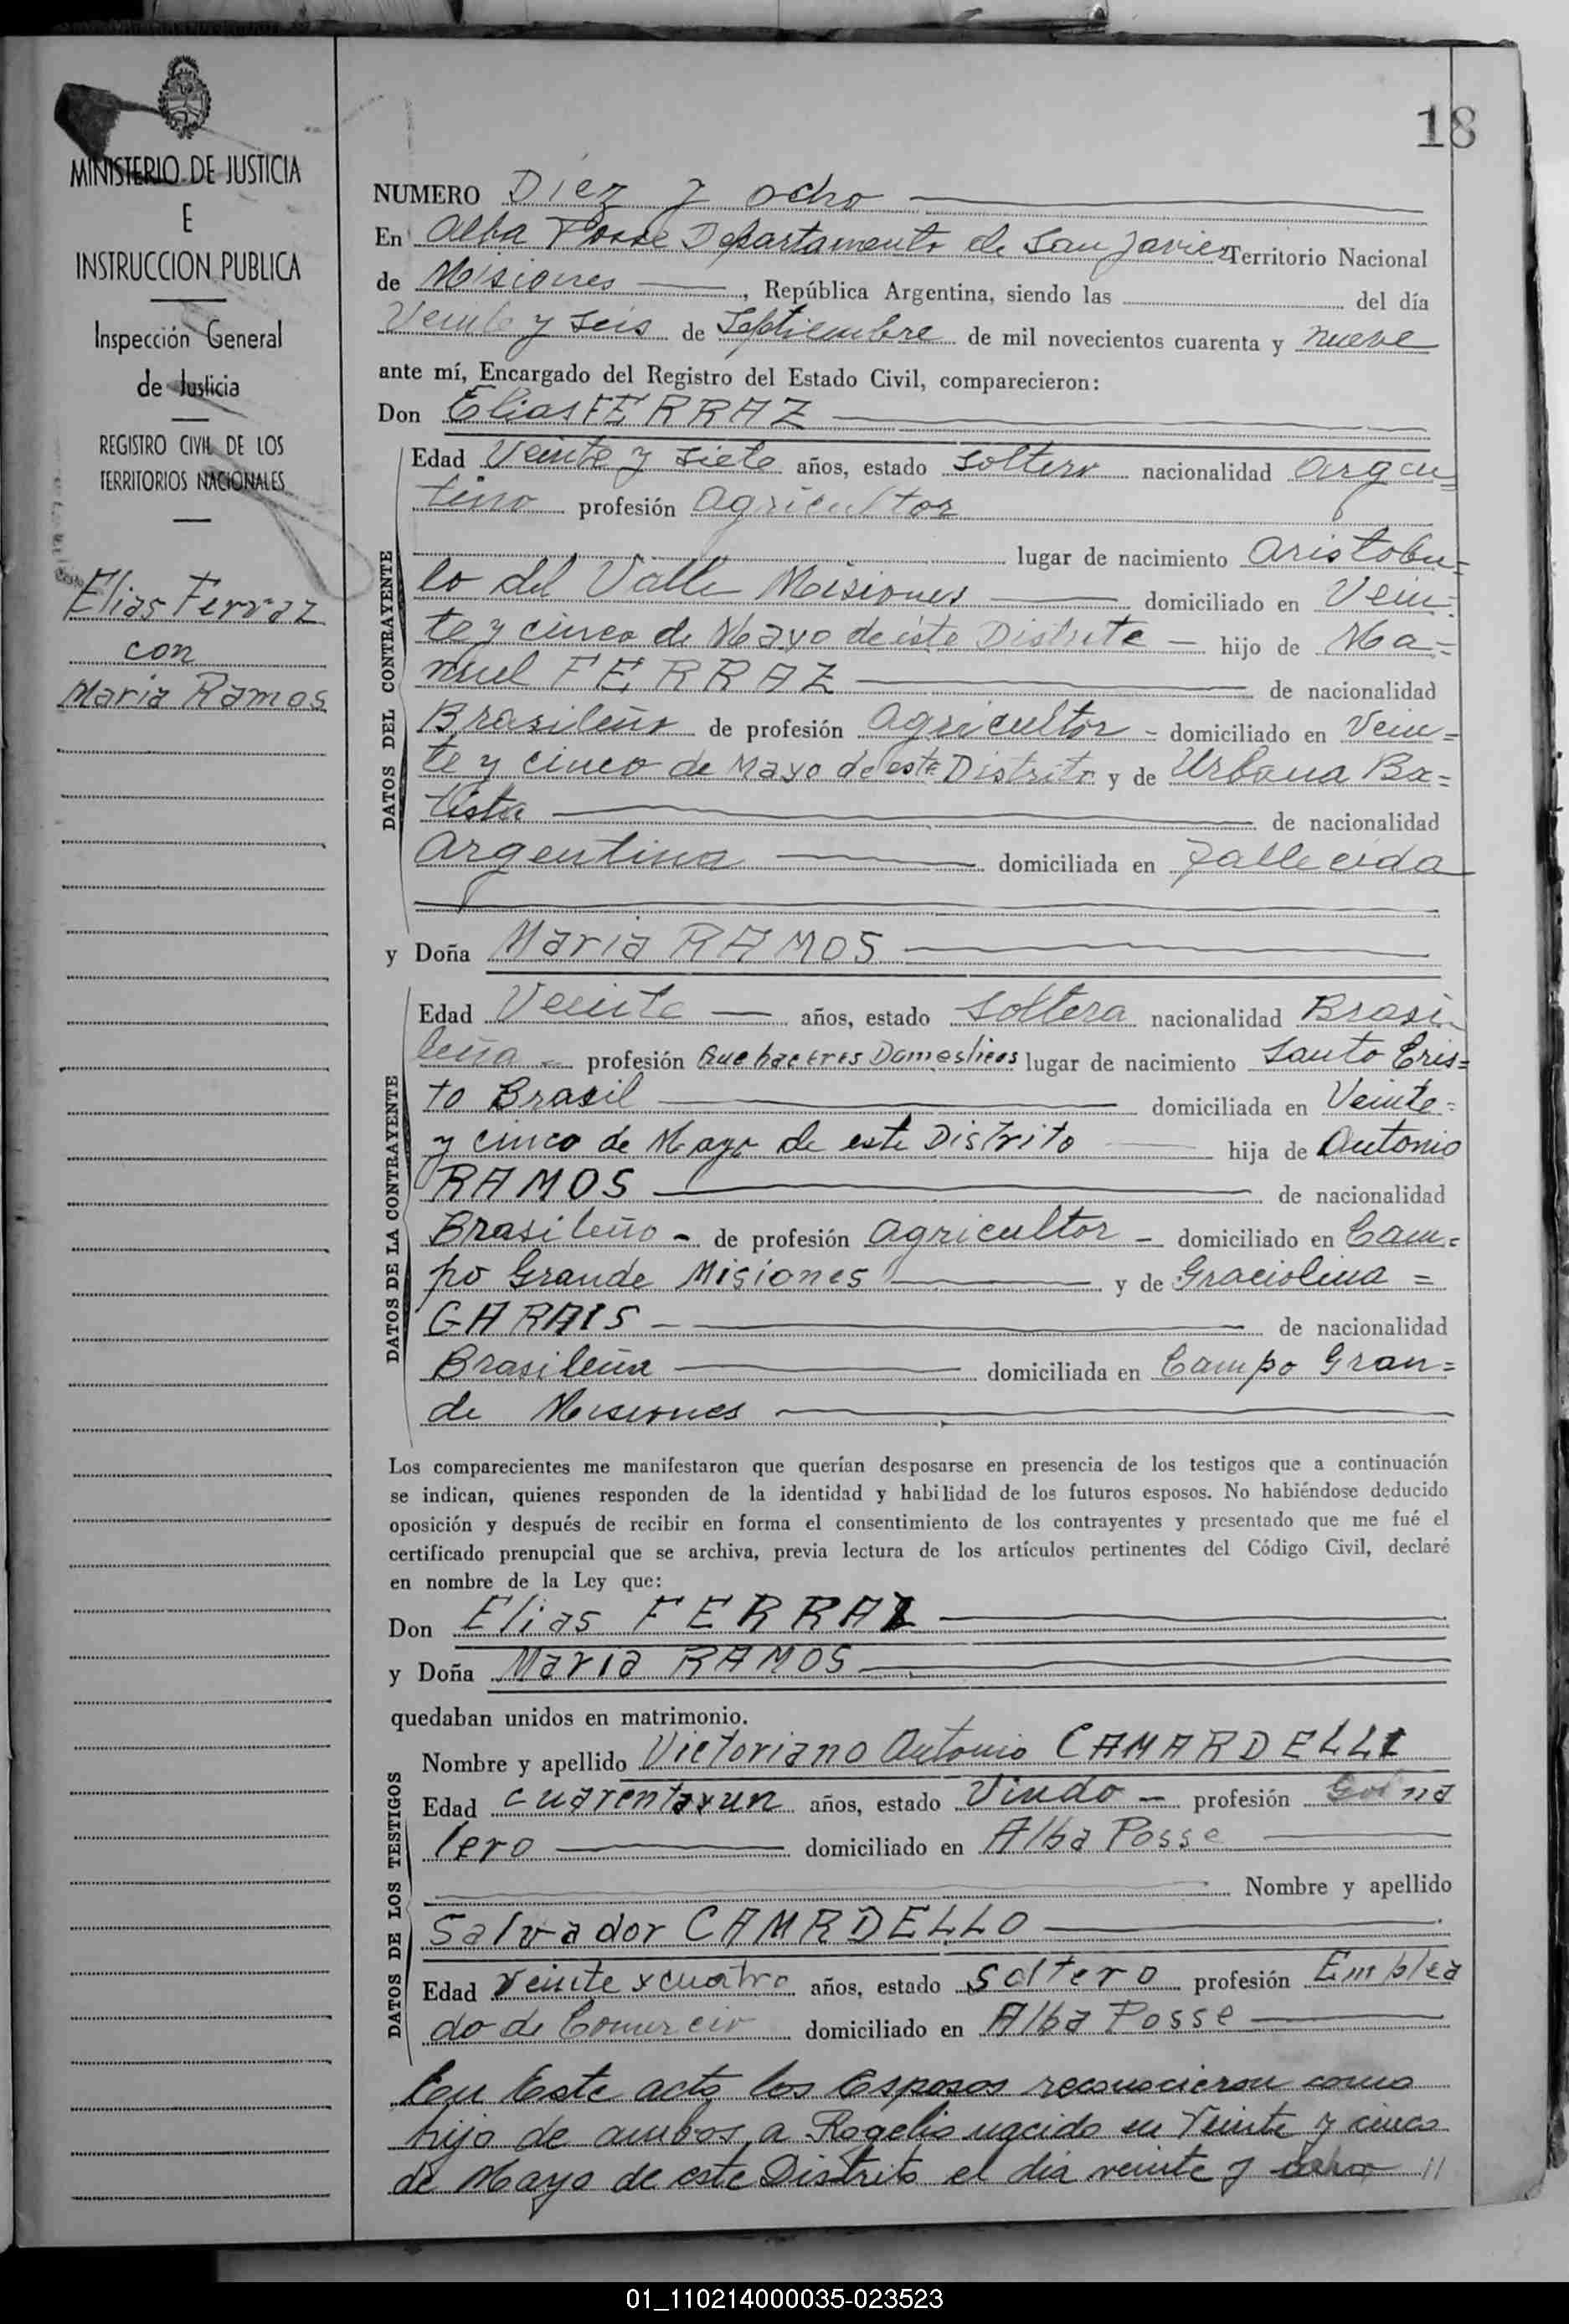 18
MINISTERIO DE JUSTICIA
E
INSTRUCCION PUBLICA
Inspección General
de Justicia
REGISTRO CIVIL DE LOS
TERRITORIOS NACIONALES
Elias Ferraz
con
Maria Ramos
NUMERO Diez y ocho
En Alba Posse Departamento de San Javier Territorio Nacional
de Misiones, República Argentina, siendo las del día
Veinte y seis de Septiembre de mil novecientos cuarenta y nueve
ante mí, Encargado del Registro del Estado Civil, comparecieron:
Don Elias FERRAZ
DATOS DEL CONTRAYENTE
Edad Veinte y siete años, estado soltero nacionalidad argen=
tino profesión agricultor
lugar de nacimiento Aristobu=
lo del Valle Misiones domiciliado en Vein=
te y cinco de Mayo de este Distrito hijo de Ma=
nuel FERRAZ de nacionalidad
Brasileño de profesión agricultor - domiciliado en Vein=
te y cinco de Mayo de este Distrito y de Urbana Ba=
tista de nacionalidad
Argentina domiciliada en fallecida
y Doña Maria RAMOS
DATOS DE LA CONTRAYENTE
Edad Veinte años, estado soltera nacionalidad Brasi-
leña - profesión Quehaceres Domesticos lugar de nacimiento Santo Cris=
to Brasil domiciliada en Veinte=
y cinco de Mayo de este Distrito hija de Antonio
RAMOS de nacionalidad
Brasileño - de profesión agricultor - domiciliado en Cam=
po Grande Misiones y de Graciolina =
GARAIS de nacionalidad
Brasileña domiciliada en Campo Gran=
de Misiones
Los comparecientes me manifestaron que querían desposarse en presencia de los testigos que a continuación
se indican, quienes responden de la identidad y habilidad de los futuros esposos. No habiéndose deducido
oposición y después de recibir en forma el consentimiento de los contrayentes y presentado que me fué el
certificado prenupcial que se archiva, previa lectura de los artículos pertinentes del Código Civil, declaré
en nombre de la Ley que:
Don Elias FERRAZ
y Doña Maria RAMOS
quedaban unidos en matrimonio.
DATOS DE LOS TESTIGOS
Nombre y apellido Victoriano Antonio CAMARDELLI
Edad cuarentayun años, estado Viudo - profesión
lero domiciliado en Alba Posse
Nombre y apellido
Salvador CAMRDELLO
Edad veinte y cuatro años, estado soltero profesión Emplea
do de Comercio domiciliado en Alba Posse
En Este acto los Esposos reconocieron como
hijo de ambos a Rogelio nacido en Veinte y cinco
de Mayo de este Distrito el dia veinte y ocho //
01_110214000035-023523